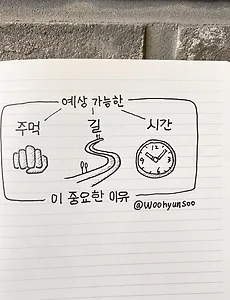 예상 가능한
주먹 길 시간
12
3
6
9
이 중요한 이유
@woohyunsoo